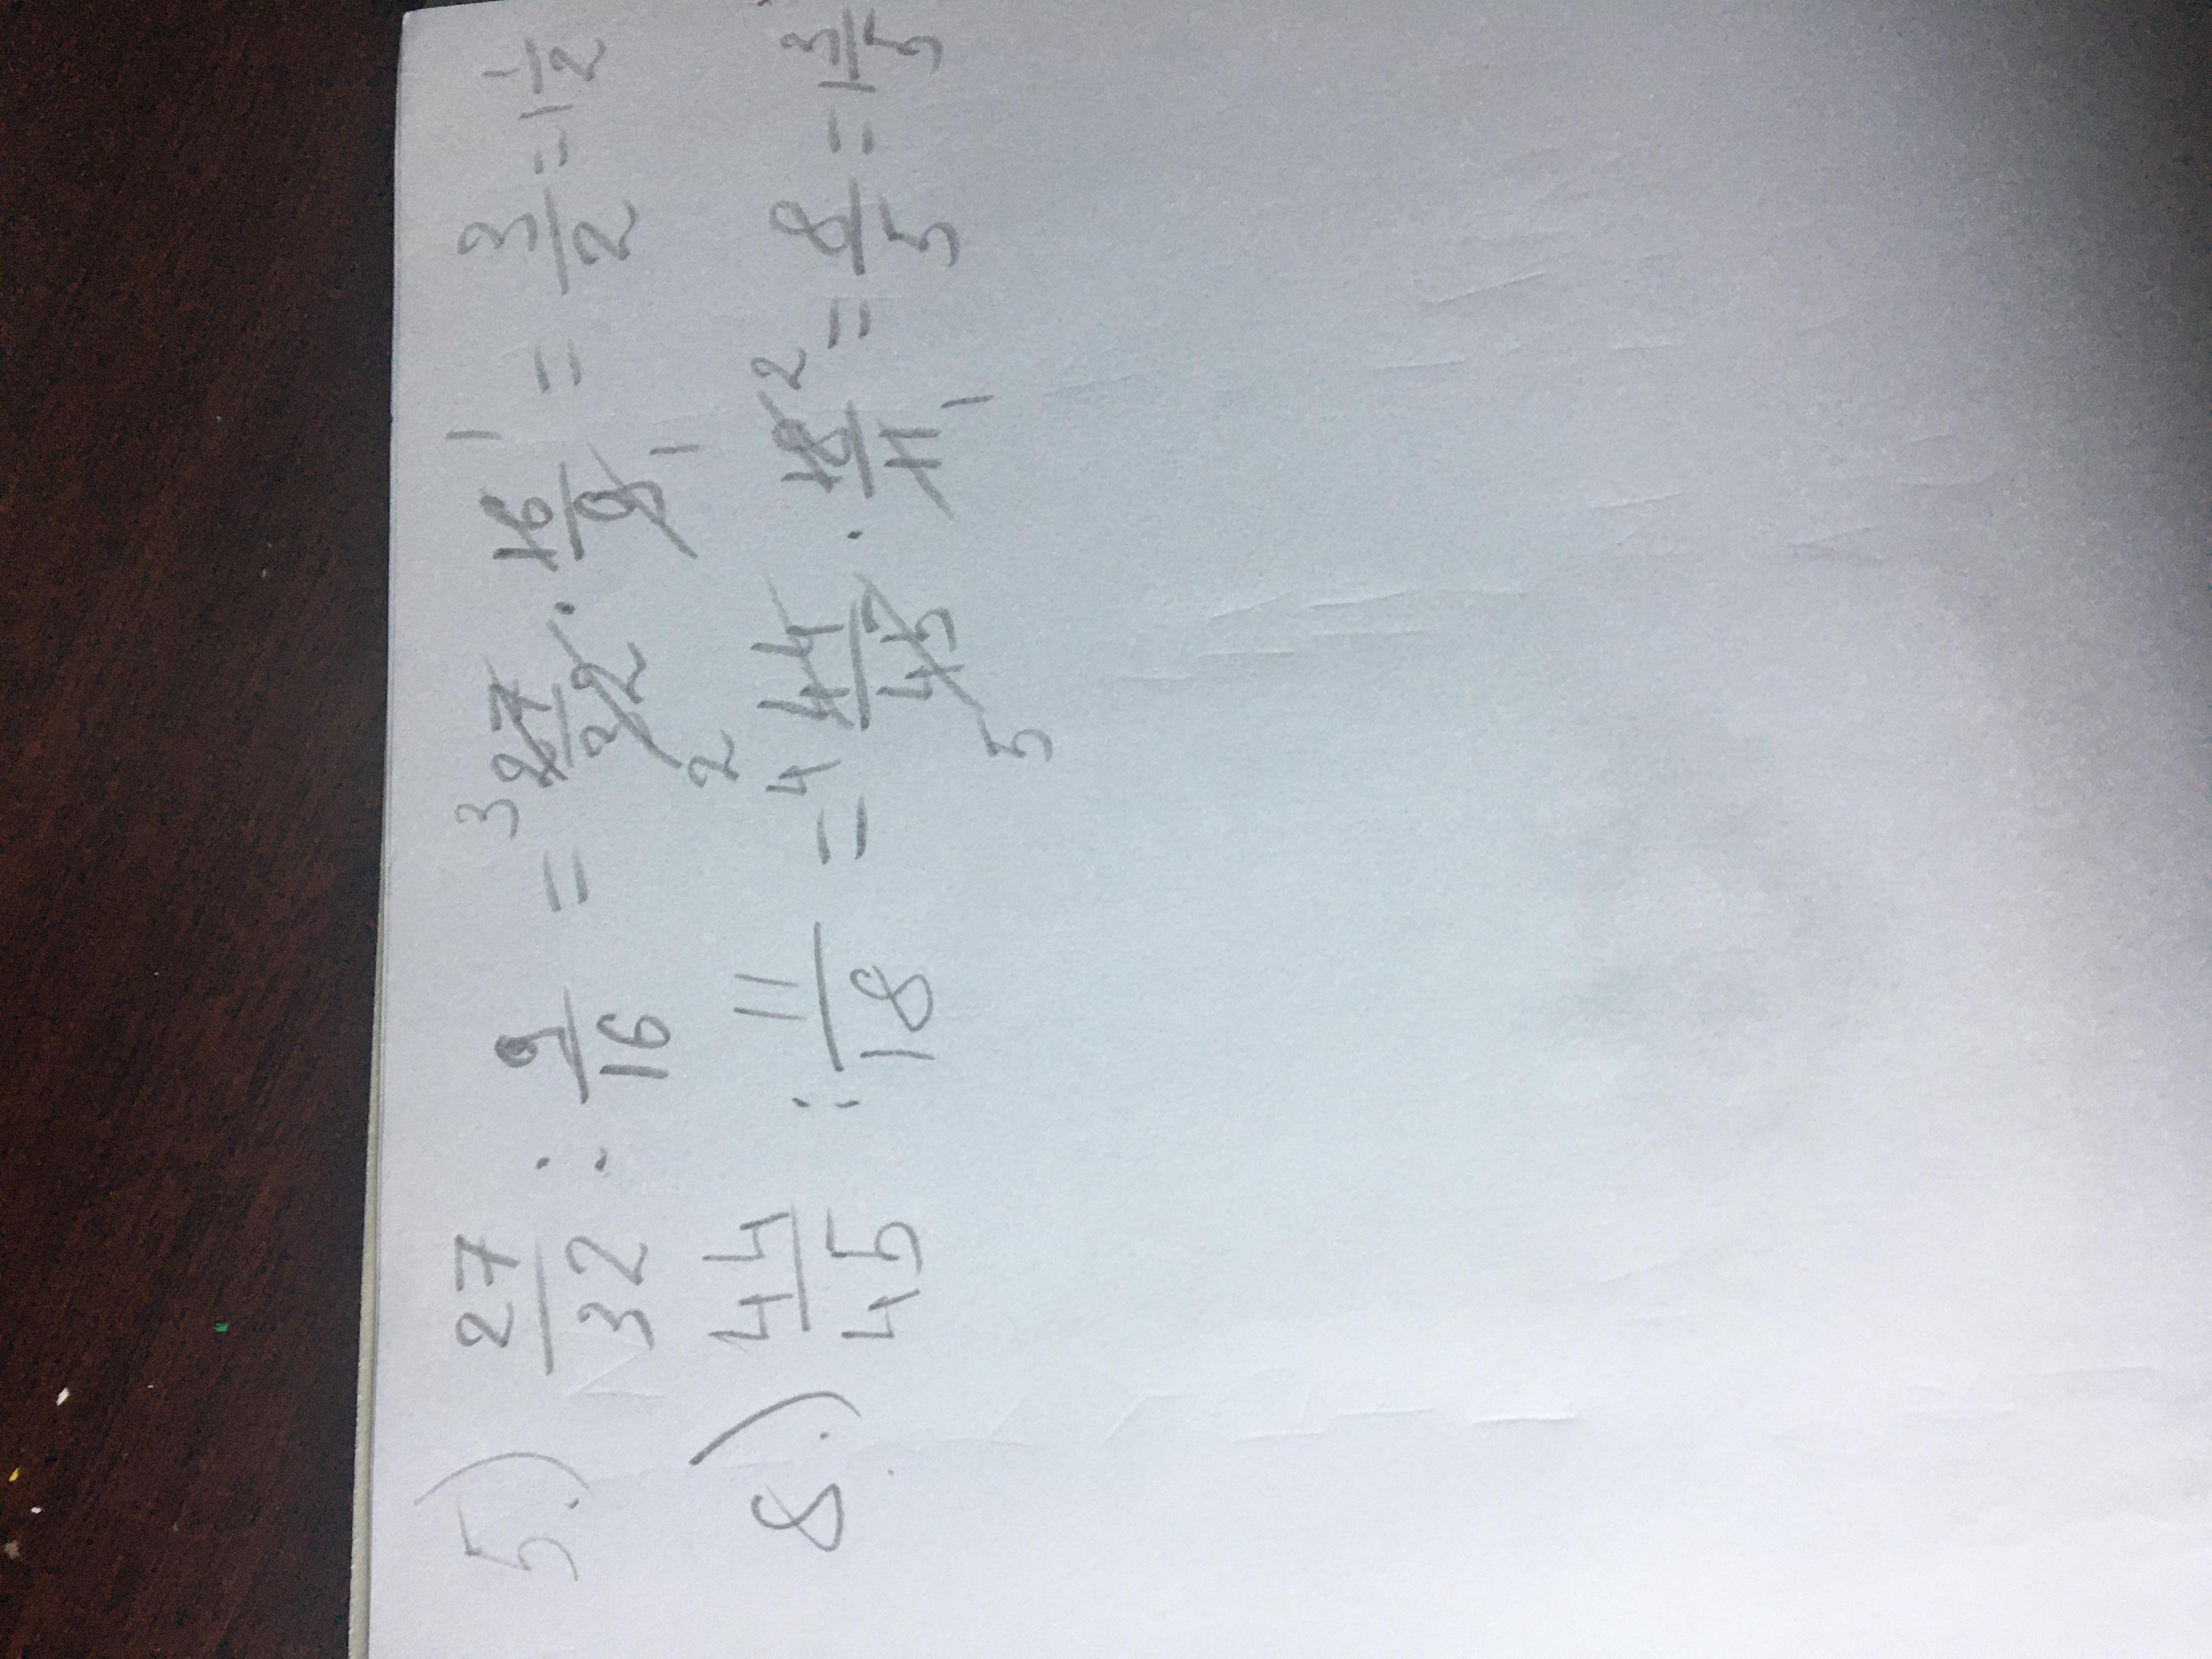 5.) 27/32 : 9/16 = 3 27/32 2 · 16/9 1 1 = 3/2 = 1 1/2
8.) 44/45 : 11/18 = 4 44/45 5 · 18/11 2 1 = 8/5 = 1 3/5